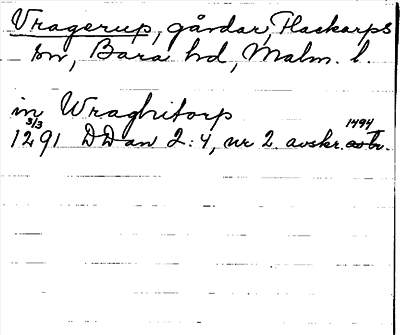 Vragerup, gårdar, Flackarps
sn, Bara hd, Malm. l.
in Wraghitorp
3/3
1291 DDan 2:4, nr 2. avskr. 1494